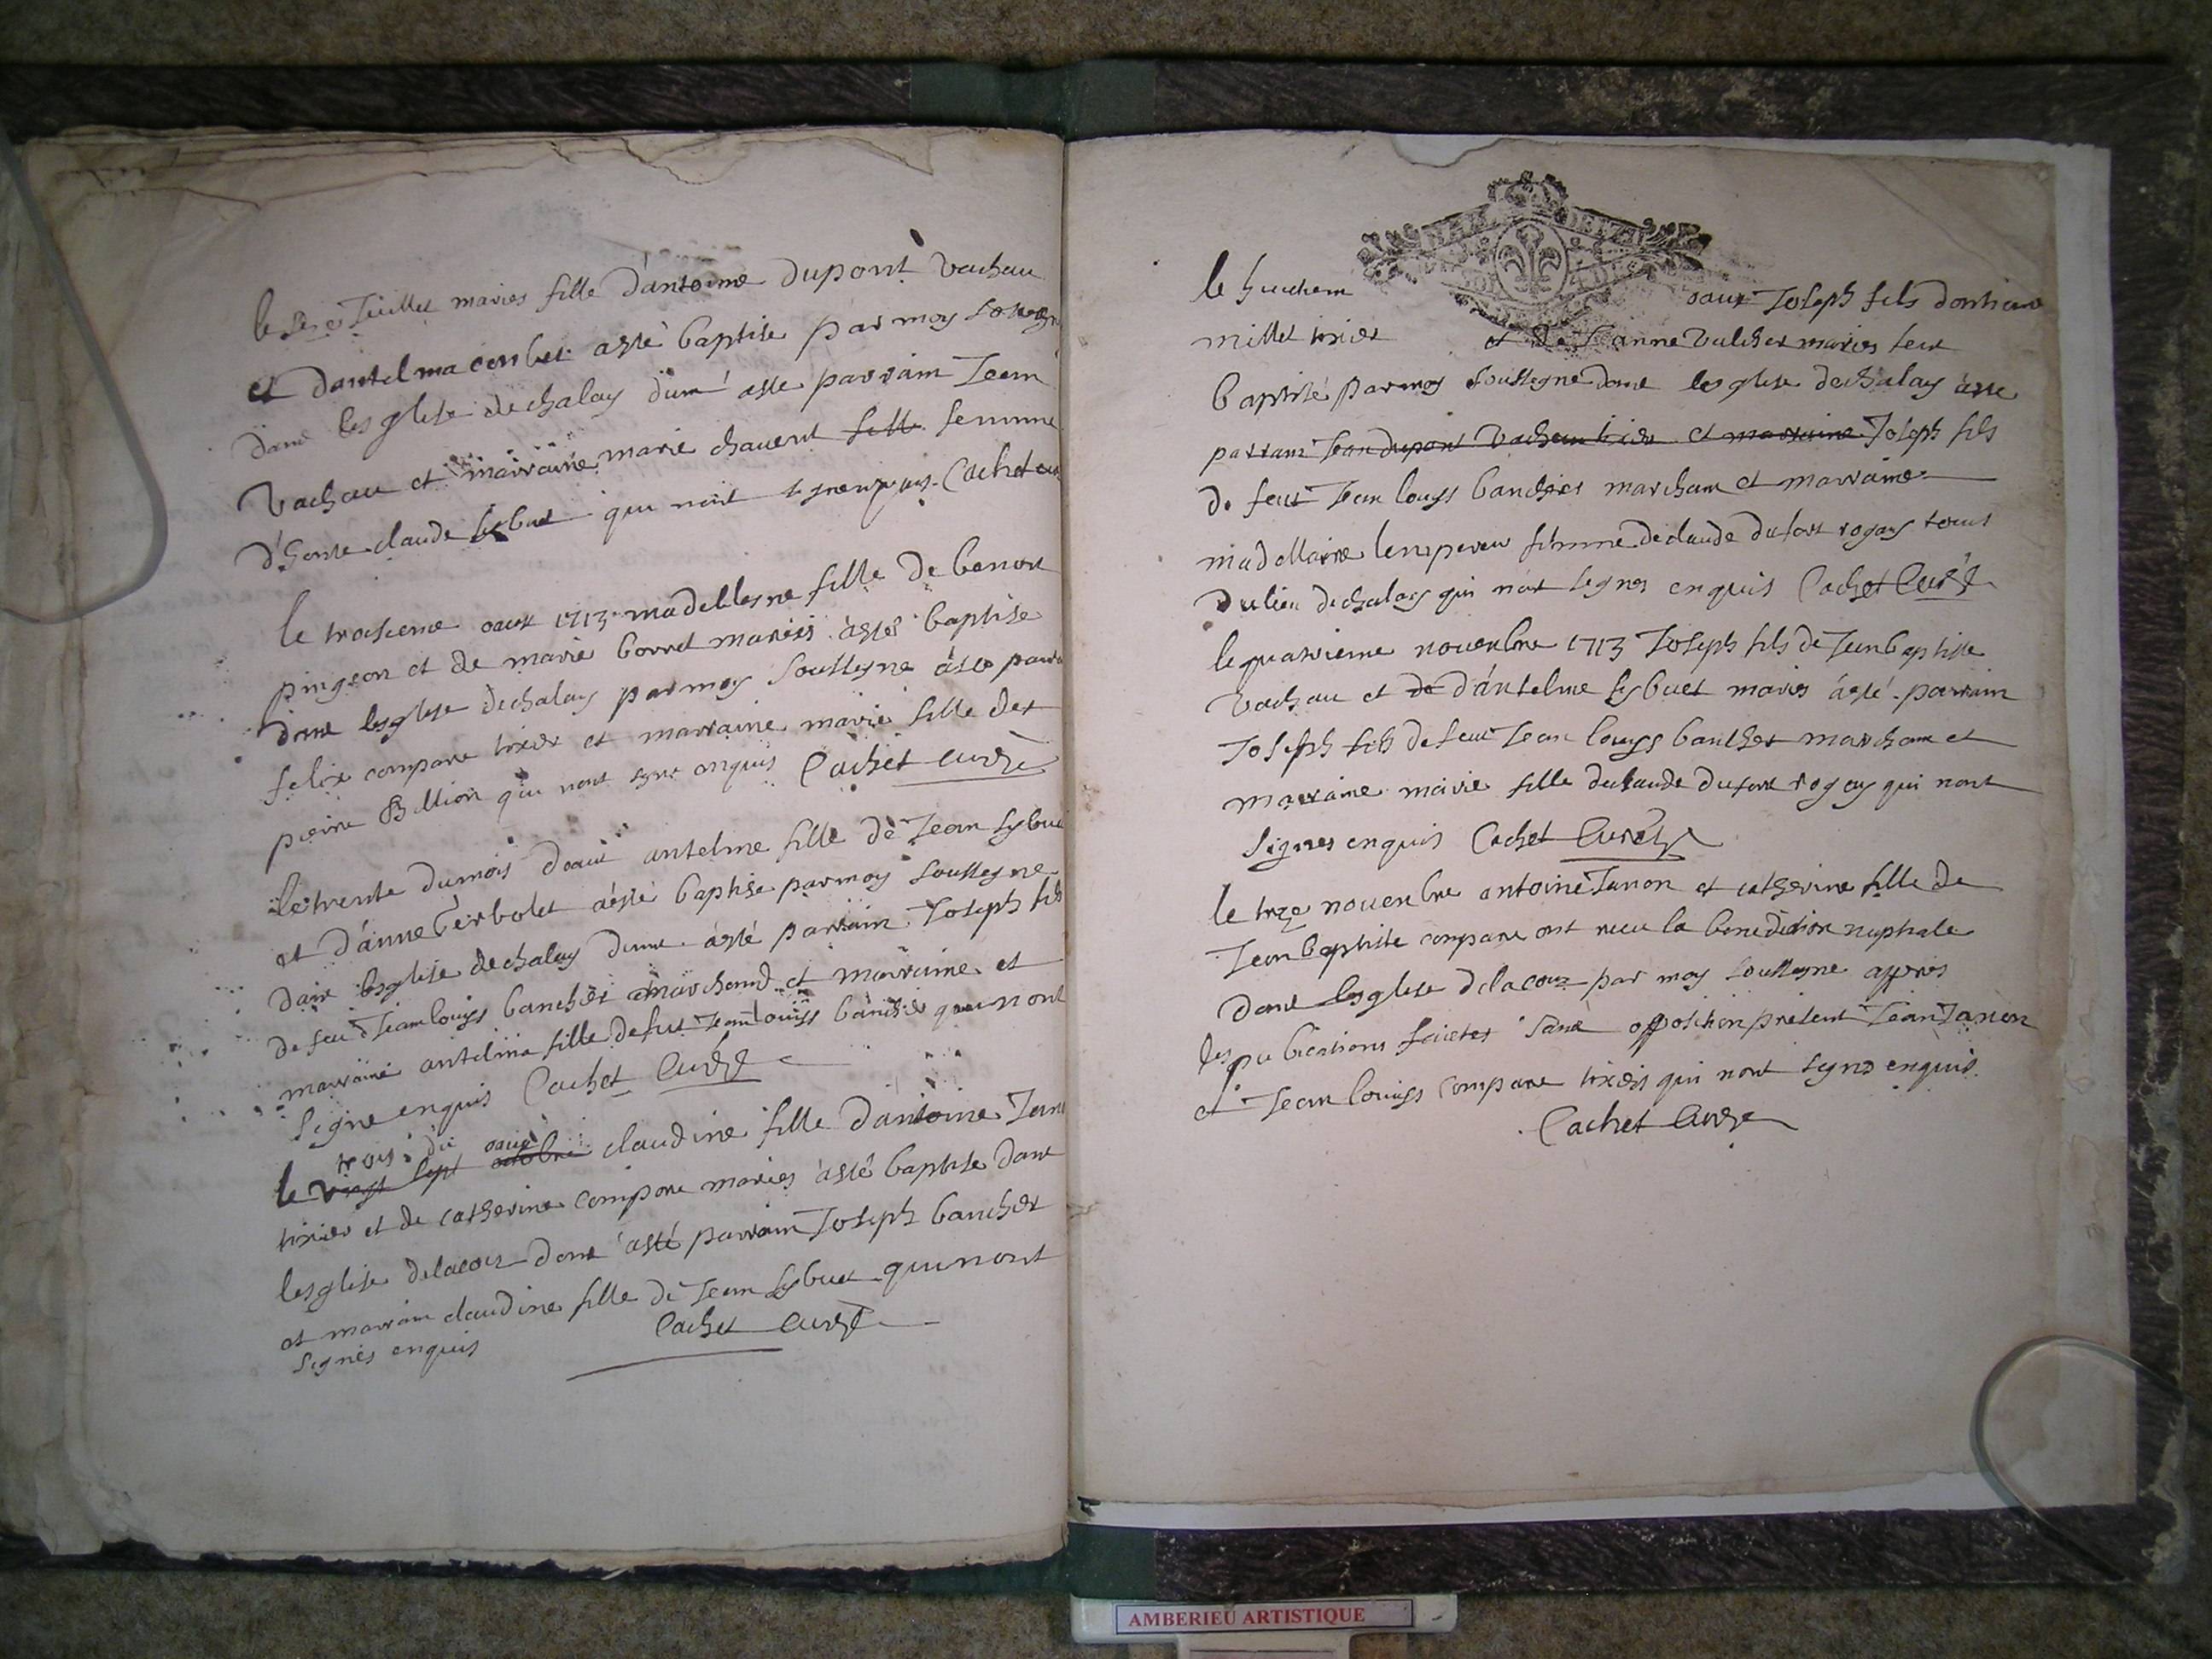 le seze Juillet maries fille d'antoine dupont vachau
et dantelma conbet asté baptise par moy
dans lesglise de chalay dum asté parrain Jean
vachau et marraine marie chavent fille femme
d'hon claude sybuet qui nont enquis Cachet
le troisieme oaux 1713 madellesne fille de benoit
pingeon et de marie borret maries asté baptise
dans lesglise dechalay par moy soussigne asté
felix compare tixier et marraine marie fille der
pierre Billion qui nont signe enquis Cachet curé
le trente dumois doaux antelme fille de Jean sybue
et d'anne Gerbolet asté baptise par moy soussegne
dans lesglise dechalay donne asté parrain Joseph fils
de feu Jean louys bancher marchand et marraine et
marraine antelma fille defeu Jean louys bancher qui nont
signe enquis Cachet curé
trois dit oaux
le vingt sept octobre claudine fille dantoine Jan
tixier et de catherine compare maries asté baptise dans
lesglise delacoux dont asté parrain Joseph bancher
et marrain claudine fille de Jean sybuet qui nont
signes enquis Cachet curé
le huictiem oaux Joseph fils
millet tixier et de anne vulcher maries
baptisé par moy soussegne dans lesglise dechalay aste
parrain Jean dupont vachau tixier et marraine Joseph fils
de feu Jean louys bancher marchan et marraine
madellaine lempereur femme declaude dufour rogay tous
dulieu dechalay qui nont signes enquis Cachet Curé
le quatrieme novenbre 1713 Joseph fils de Jean baptiste
vachau et de d'antelme sybuet maries asté parrain
Joseph fils de feu Jean louys bancher marchan et
marraine marie fille declaude dufour rogay qui nont
signes enquis Cachet Curé
le treze novenbre antoine Janon et catherine fille de
Jean baptiste compare ont receu la benediction nuptiale
dans lesglise delacoux par moy soussegne appres
les publications faictes sans opposition present Jean Janon
et Jean louys compare tixiers qui nont signe enquis
Cachet Curé
AMBERIEU ARTISTIQUE